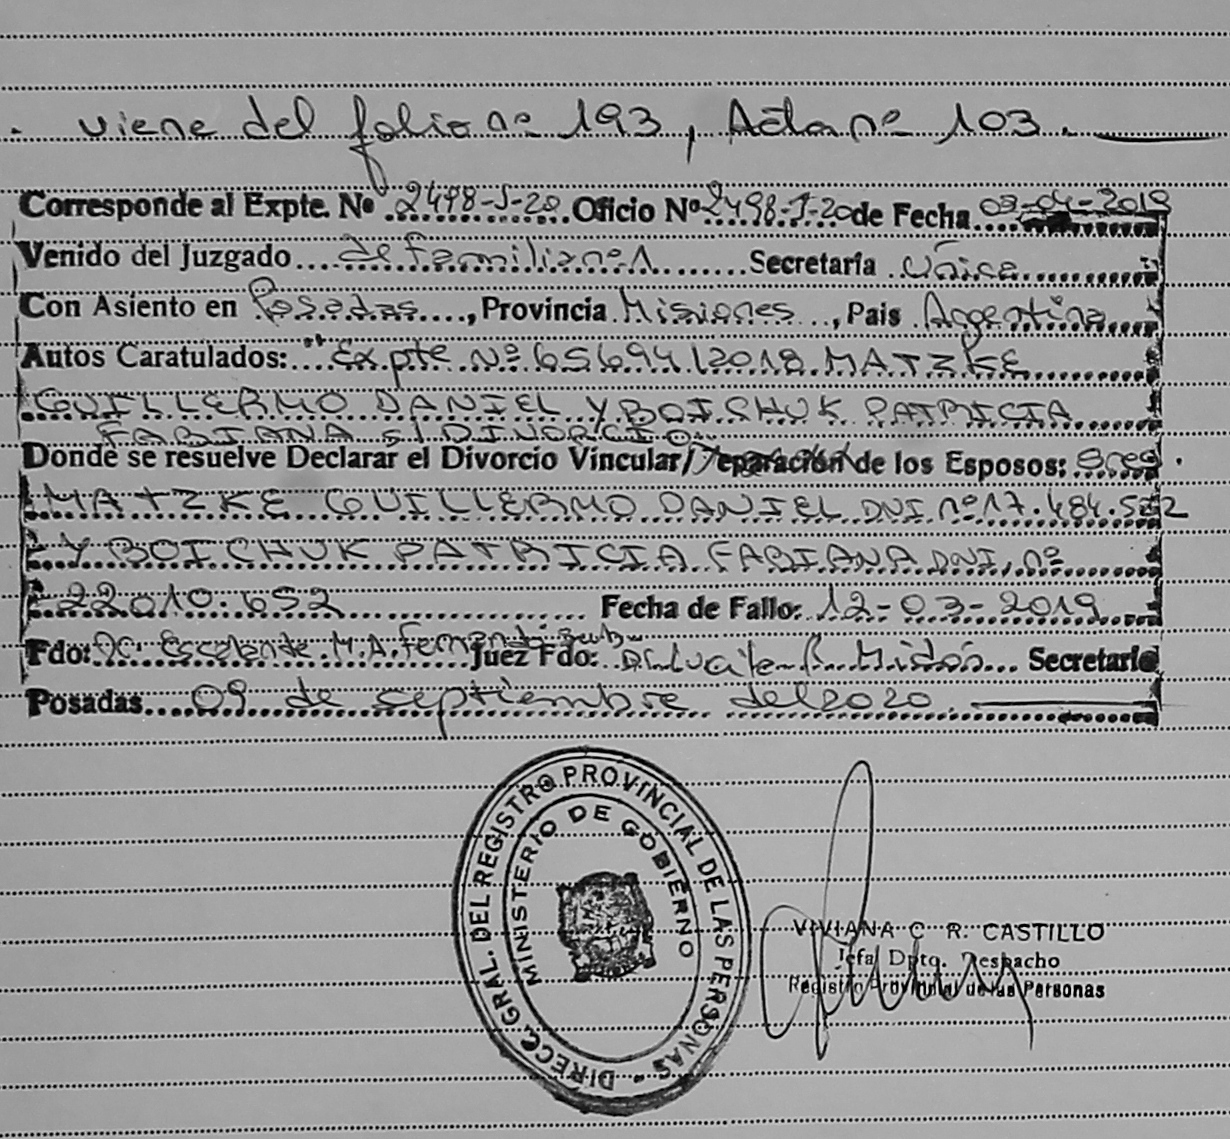 . viene del folio nº 193, Acta nº 103.
Corresponde al Expte. Nº 2498-J-20 Oficio Nº 2498-J-20 de Fecha 03-04-2019
Venido del Juzgado de Familia nº 1 Secretaría Única
Con Asiento en Posadas, Provincia Misiones, Pais Argentina
Autos Caratulados: "Expte Nº 65694/2018 MATZKE
GUILLERMO DANIEL Y BOICHUK PATRICIA
FABIANA S/ DIVORCIO
Donde se resuelve Declarar el Divorcio Vincular/ de los Esposos:
MATZKE GUILLERMO DANIEL DNI nº 17.484.522
Y BOICHUK PATRICIA FABIANA DNI. nº
22010.652 Fecha de Fallo: 12-03-2019
Fdo: Escalante M.A. Juez Fdo: Secretario
Posadas 09 de septiembre del 2020.
DIRECC. GRAL. DEL REGISTRO PROVINCIAL DE LAS PERSONAS -
MINISTERIO DE GOBIERNO
VIVIANA C. R. CASTILLO
Jefa Dpto. Despacho
Registro Provincial de las Personas